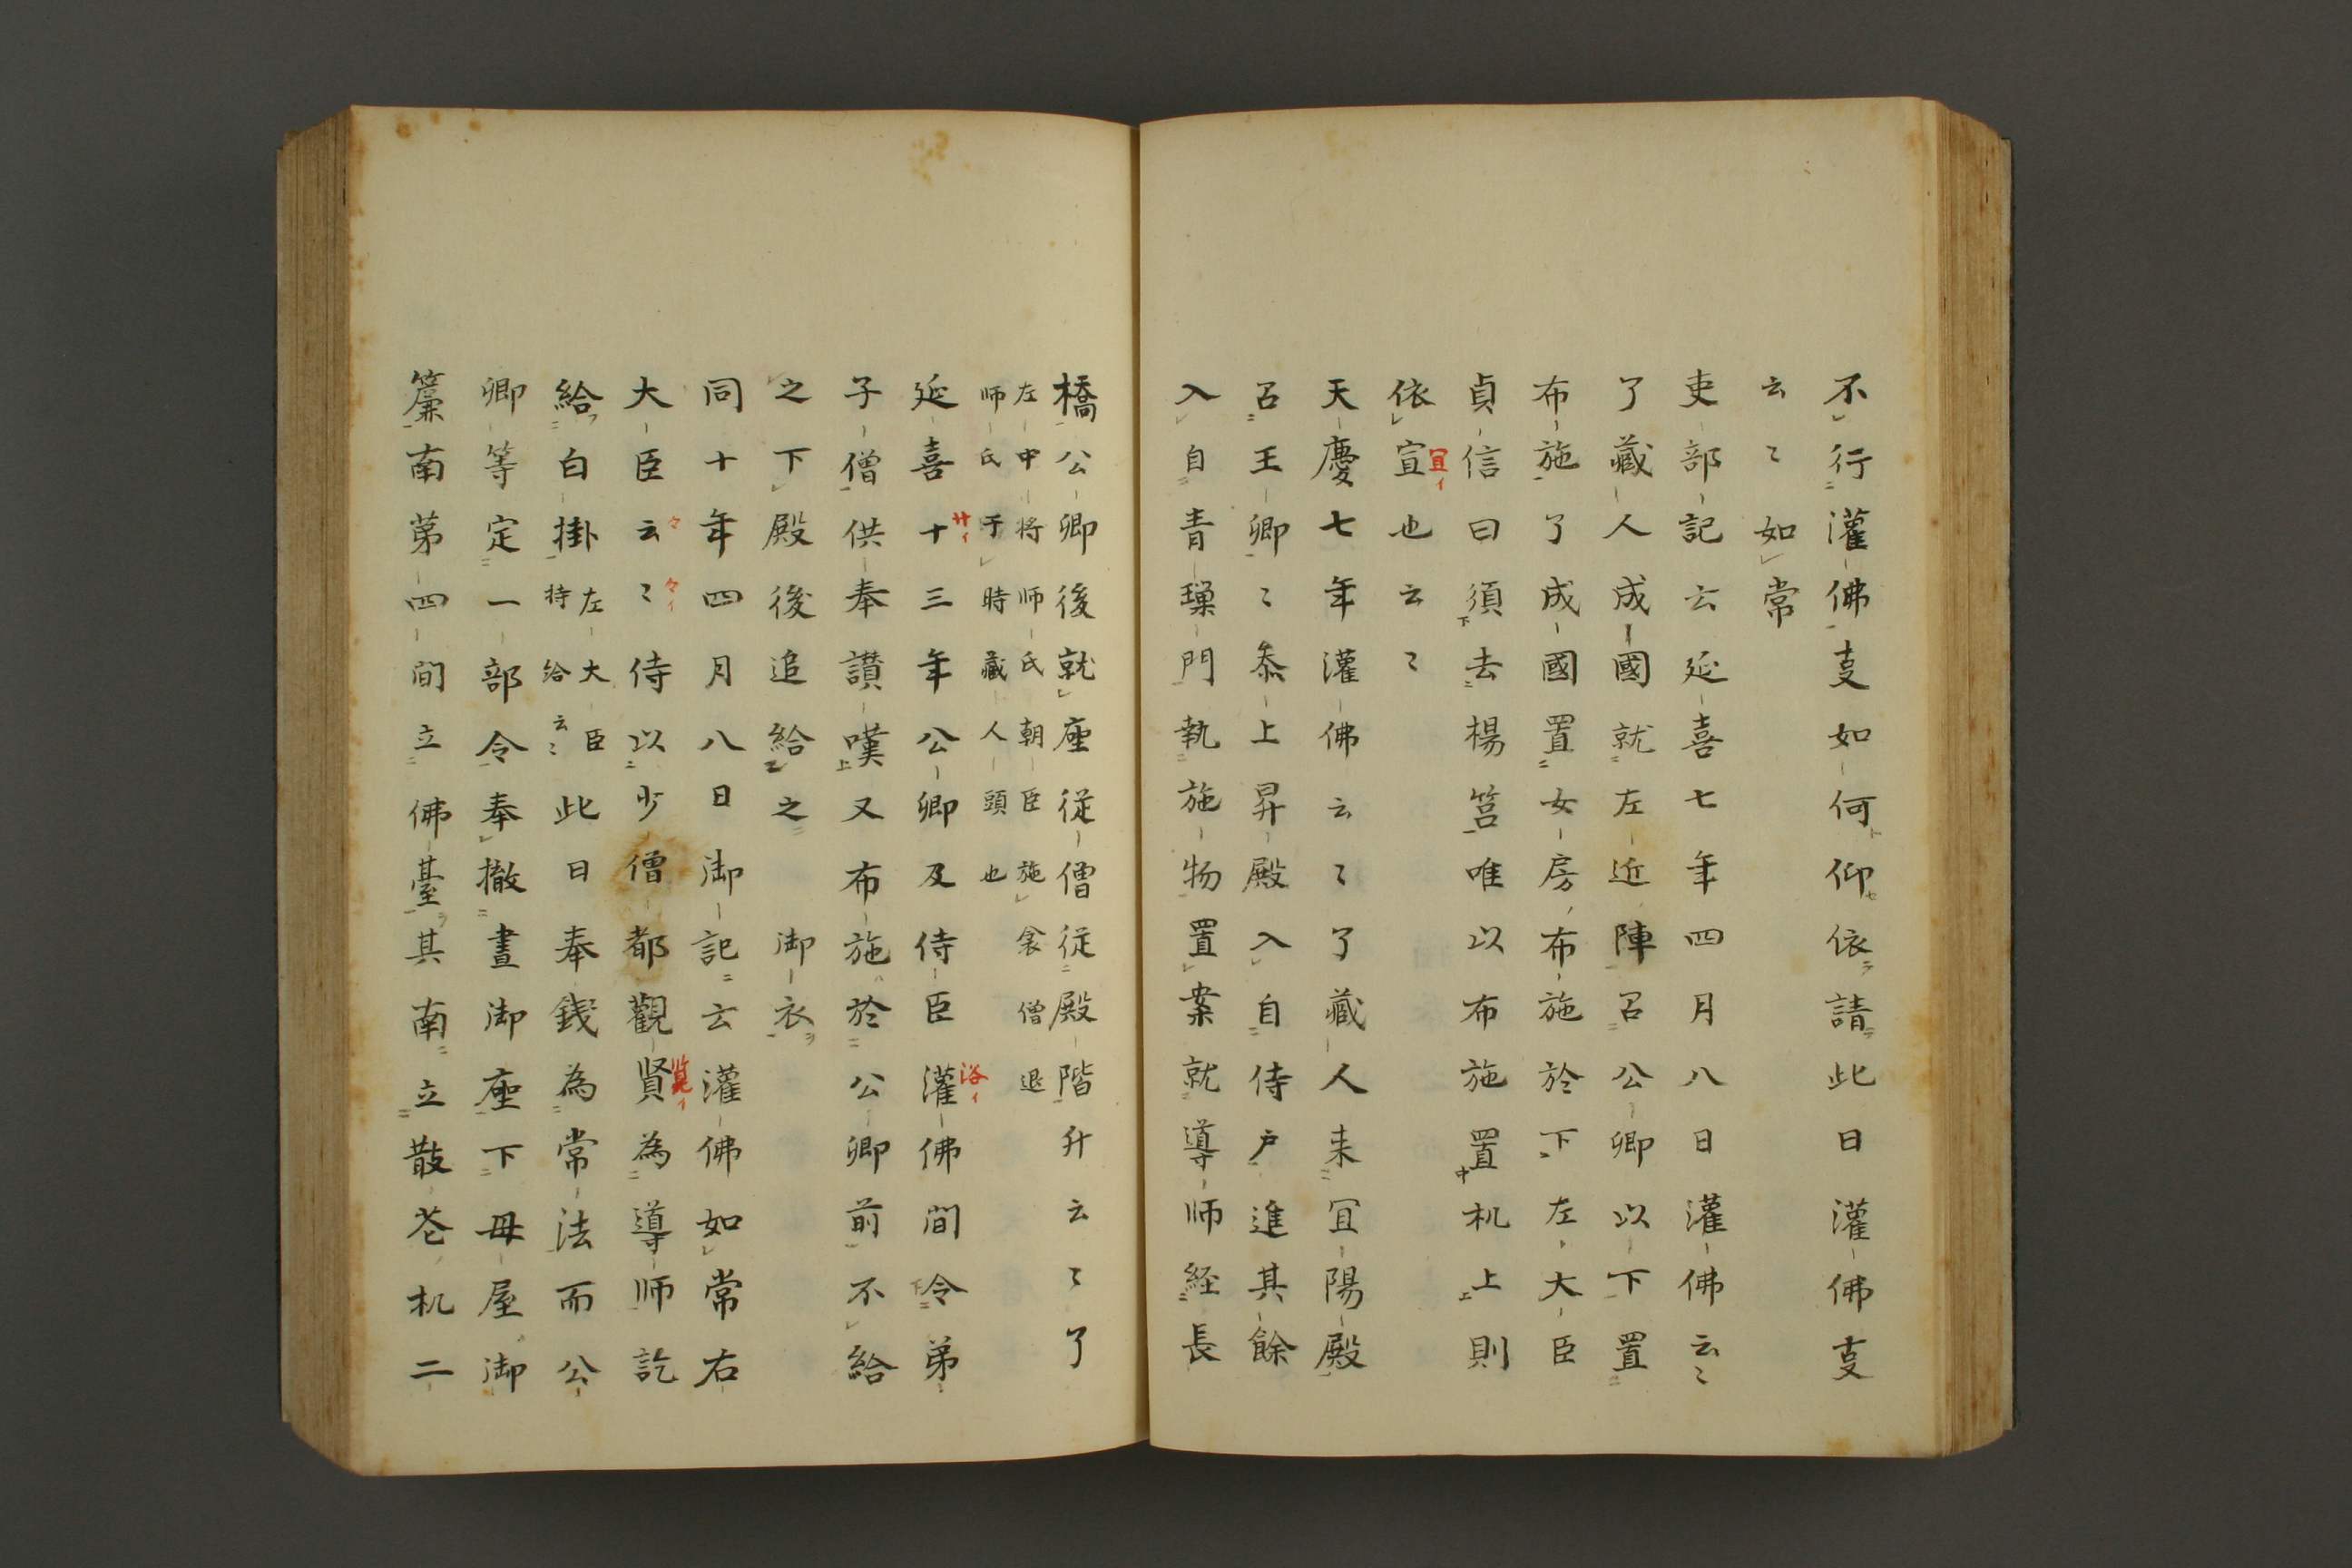 不行灌佛事如何仰依請此日灌佛事
云〻如常
吏部記云延喜七年四月八日灌佛云〻
了藏人成國就左近陣召公卿以下置
布施了成國置女房布施於下左大臣
貞信曰須去楊筥唯以布施置机上則
依宣也云〻
冝イ
天慶七年灌佛云〻了藏人来冝陽殿
召王卿〻叅上昇殿入自侍戶進其餘
入自青璅門執施物置案就導師経長
橋公卿後就座従僧従殿階升云〻了
左中將师氏朝臣施衾僧退
师氏于時藏人頭也
延喜十三年公卿及侍臣灌佛間令弟
廿イ
浴イ
子僧供奉讃嘆又布施於公卿前不給
之下殿後追給之 御衣
同十年四月八日御記云灌佛如常右
大臣云〻侍以少僧都觀賢為導師訖
給白掛左大臣持給云〻此日奉錢為常法而公
卿等定一部令奉撤晝御座下母屋御
簾南第四間立佛臺其南立散花机二